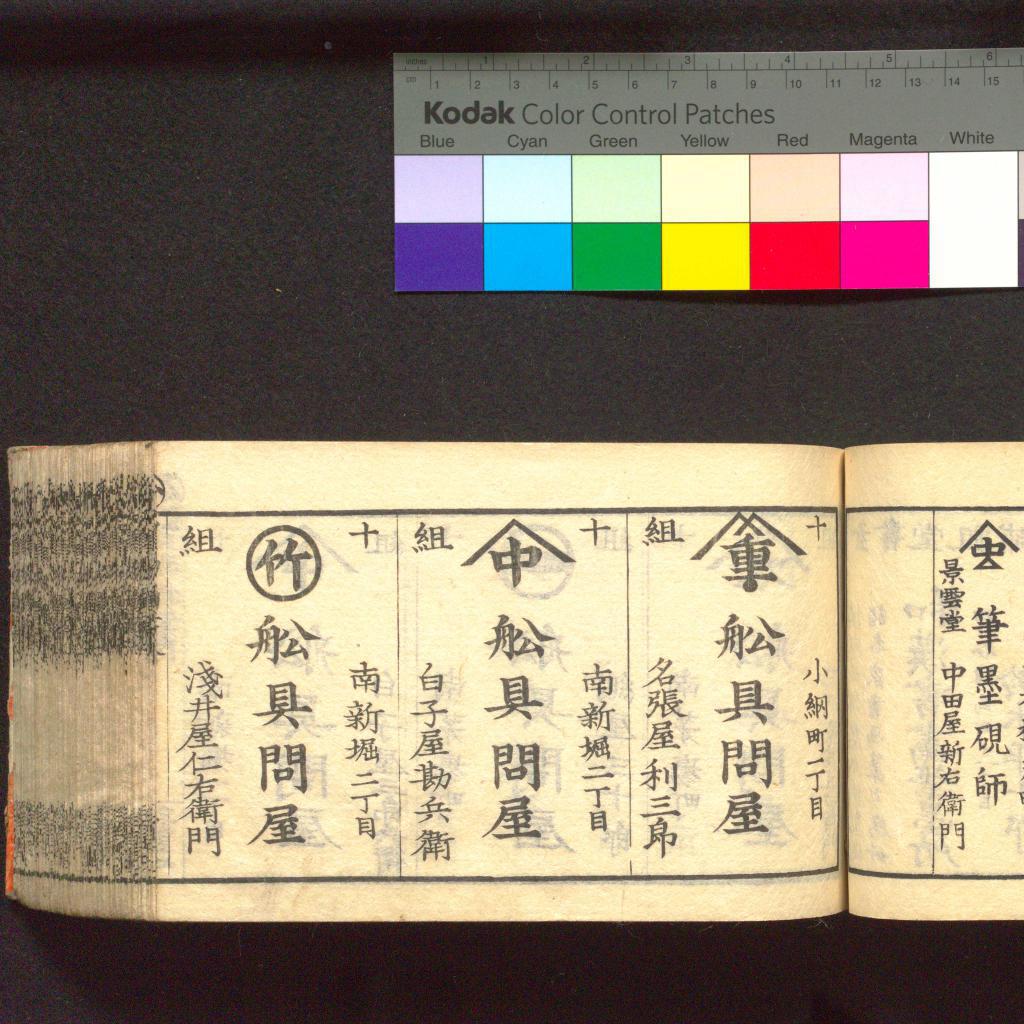 inches 1 2 3 4 5 6
cm 1 2 3 4 5 6 7 8 9 10 11 12 13 14 15
Kodak Color Control Patches
Blue Cyan Green Yellow Red Magenta White
虫 筆墨硯師
景雲堂 中田屋新右衛門
十 小網町一丁目
重 舩具問屋
組 名張屋利三郎
十 南新堀二丁目
中 舩具問屋
組 白子屋勘兵衛
十 南新堀二丁目
竹 舩具問屋
組 淺井屋仁右衛門